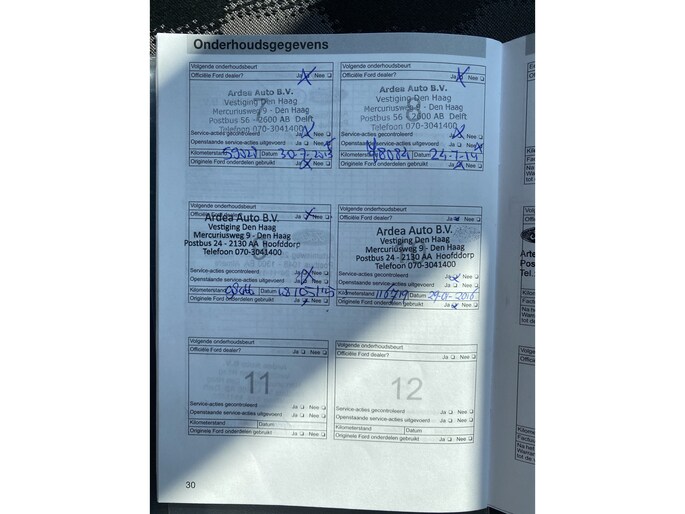 Onderhoudsgegevens
Volgende onderhoudsbeurt
Officiële Ford dealer? Ja Nee
7
Ardea Auto B.V.
Vestiging Den Haag
Mercuriusweg 9 - Den Haag
Postbus 56 - 2600 AB Delft
Telefoon 070-3041400
Service-acties gecontroleerd Ja Nee
Openstaande service-acties uitgevoerd Ja Nee
Kilometerstand Datum 30-7-2013
Originele Ford onderdelen gebruikt Ja Nee
Volgende onderhoudsbeurt
Officiële Ford dealer? Ja Nee
8
Ardea Auto B.V.
Vestiging Den Haag
Mercuriusweg 9 - Den Haag
Postbus 56 - 2600 AB Delft
Telefoon 070-3041400
Service-acties gecontroleerd Ja Nee
Openstaande service-acties uitgevoerd Ja Nee
Kilometerstand Datum 24-7-14
Originele Ford onderdelen gebruikt Ja Nee
Volgende onderhoudsbeurt
Officiële Ford dealer? Ja Nee
Ardea Auto B.V.
Vestiging Den Haag
Mercuriusweg 9 - Den Haag
Postbus 24 - 2130 AA Hoofddorp
Telefoon 070-3041400
Service-acties gecontroleerd Ja Nee
Openstaande service-acties uitgevoerd Ja Nee
Kilometerstand Datum
Originele Ford onderdelen gebruikt Ja Nee
Volgende onderhoudsbeurt
Officiële Ford dealer? Ja Nee
Ardea Auto B.V.
Vestiging Den Haag
Mercuriusweg 9 - Den Haag
Postbus 24 - 2130 AA Hoofddorp
Telefoon 070-3041400
Service-acties gecontroleerd Ja Nee
Openstaande service-acties uitgevoerd Ja Nee
Kilometerstand Datum
Originele Ford onderdelen gebruikt Ja Nee
Volgende onderhoudsbeurt
Officiële Ford dealer? Ja Nee
11
Service-acties gecontroleerd Ja Nee
Openstaande service-acties uitgevoerd Ja Nee
Kilometerstand Datum
Originele Ford onderdelen gebruikt Ja Nee
Volgende onderhoudsbeurt
Officiële Ford dealer? Ja Nee
12
Service-acties gecontroleerd Ja Nee
Openstaande service-acties uitgevoerd Ja Nee
Kilometerstand Datum
Originele Ford onderdelen gebruikt Ja Nee
30